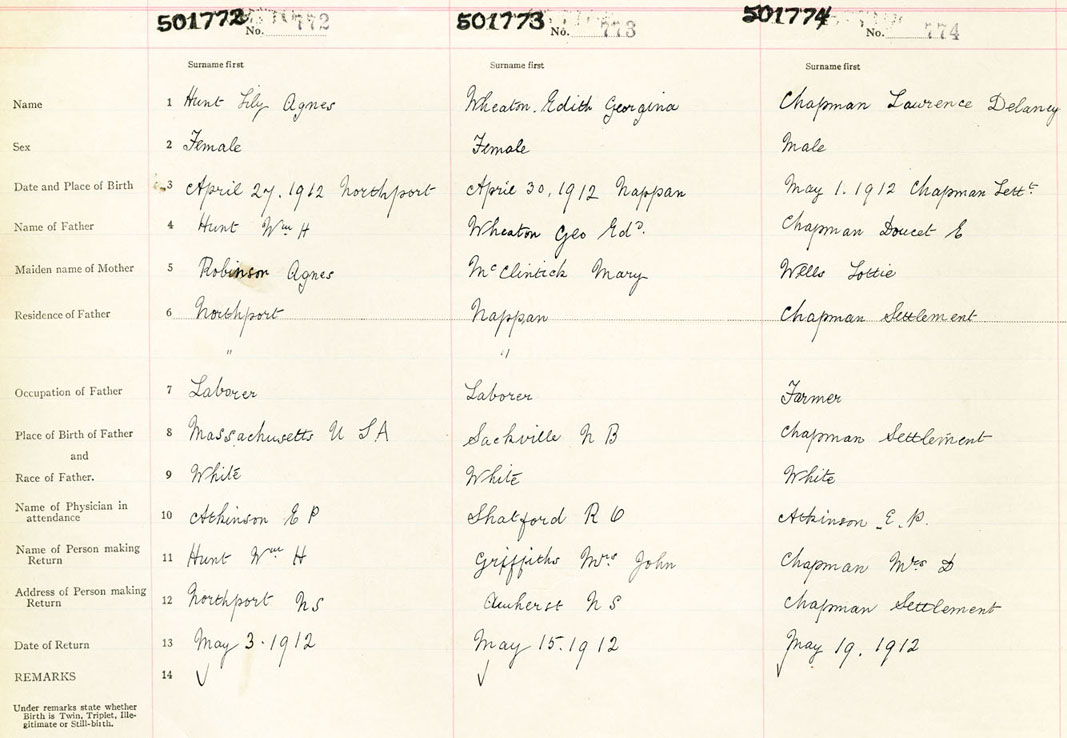 501772 No. 772 501773 No. 773 501774 No. 774
Surname first Surname first Surname first
Name 1 Hunt Lily Agnes Wheaton Edith Georgina Chapman Lawrence Delaney
Sex 2 Female Female Male
Date and Place of Birth 3 April 27, 1912 Northport April 30, 1912 Nappan May 1. 1912 Chapman Settt
Name of Father 4 Hunt Wm H Wheaton Geo Edd. Chapman Doucet E
Maiden name of Mother 5 Robinson Agnes McClintick Mary Wells Lottie
Residence of Father 6 Northport Nappan Chapman Settlement
" "
Occupation of Father 7 Laborer Laborer Farmer
Place of Birth of Father 8 Massachusetts U S A Sackville N B Chapman Settlement
and
Race of Father. 9 White White White
Name of Physician in
attendance 10 Atkinson E P Shatford R O Atkinson E. P.
Name of Person making
Return 11 Hunt Wm H Griffiths Mrs John Chapman Mrs D
Address of Person making
Return 12 Northport NS Amherst NS Chapman Settlement
Date of Return 13 May 3. 1912 May 15. 1912 May 19. 1912
REMARKS 14 ✓ ✓ ✓
Under remarks state whether
Birth is Twin, Triplet, Ille-
gitimate or Still-birth.